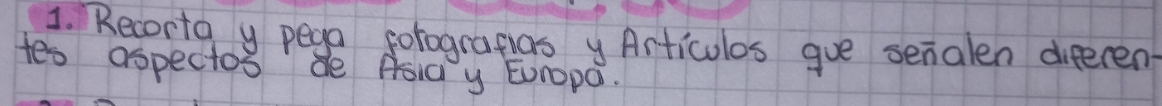 1. Recorta y pega fotografias y Artículos que señalen diferen-
tes aspectos de Asia y Europa.